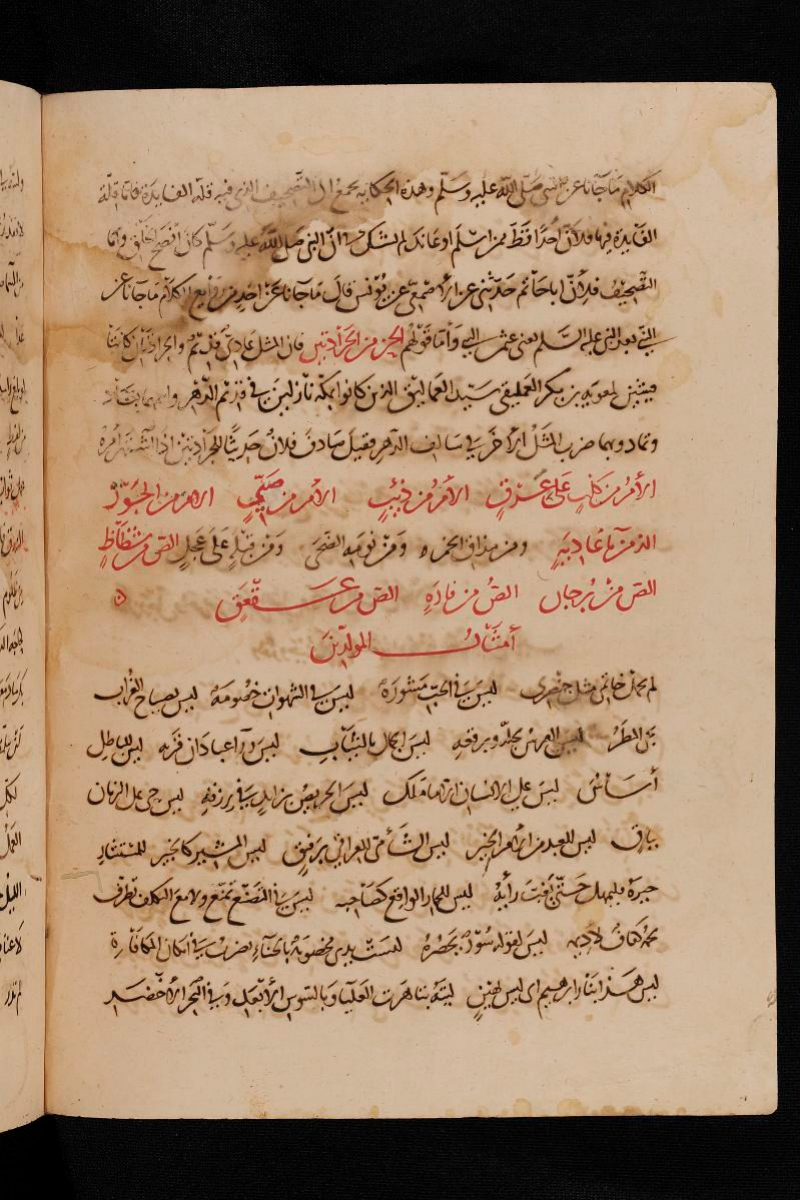 الكلام ما جآنا عن النبي صلى الله عليه وسلم وهذه الحكاية تجمع الى التصحيف الذي فيه قلة الفايدة فاما قلة
الفايدة فيها فلان احدا قط ممن اسلم او عاند لم يشك في ان النبي صلى الله عليه وسلم كان افصح الخلق واما
التصحيف فلان ابا حاتم حدثني عن الاصمعي عن يونس قال ما جآنا عن احد من روايع الكلام ما جآنا عن
البتي بعد النبي عليه السلم يعني عثمن البتي واما قولهم الحن من الجرادتين فان المثل عادي قديم والجرادتان كانتا
قينتين لمعوية بن بكر العمليقي سيد العماليق الذين كانوا بمكة نازلين في قديم الدهر واسمهما
وثماد وبهما ضرب المثل الاخر في سالف الدهر فقيل صادف فلان حديثا للجرادتين اذا اشتهر امره
الأم من كلب على عرق الأم من ذيب الأم من صبي الأم من الجوز
الذ من ومن مذاق الخمر ومن نومة الضحى ومن قبلة على عجل الص من شظاظ
الص من برجان الص من فارة الص من عقعق
أمثال المولدين
لم يحمل خاتمي مثل خنصري ليس في الحب مشورة ليس في الشهوات خصومة ليس بصياح الغراب
يجي المطر ليس الفرس بجله وبرقعه ليس الجمال بالثياب ليس ورآ عبادان قرية ليس للباطل
أساس ليس على الانسان الا ما ملك ليس الحريص بزايد في رزقه ليس حي على الزمان
بباق ليس للعبد من الامر الخير ليس الشأمي للعراقي برفيق ليس المشير كالخبير للمستشار
حيرة فليمهل حتى يغب رأيه ليس للحمار الواقع كصاحبه ليس في التصنع تمتع ولا مع التكلف تظرف
ليس لقوله سور يحصره ليست يدي مخضوبة بالحناء يضرب في امكان المكافاة
ليس هذا بنار ابرهيم اي ليس بهين ليته بساهرة العليا وبالسوس الابعد وفي البحر الاخضر